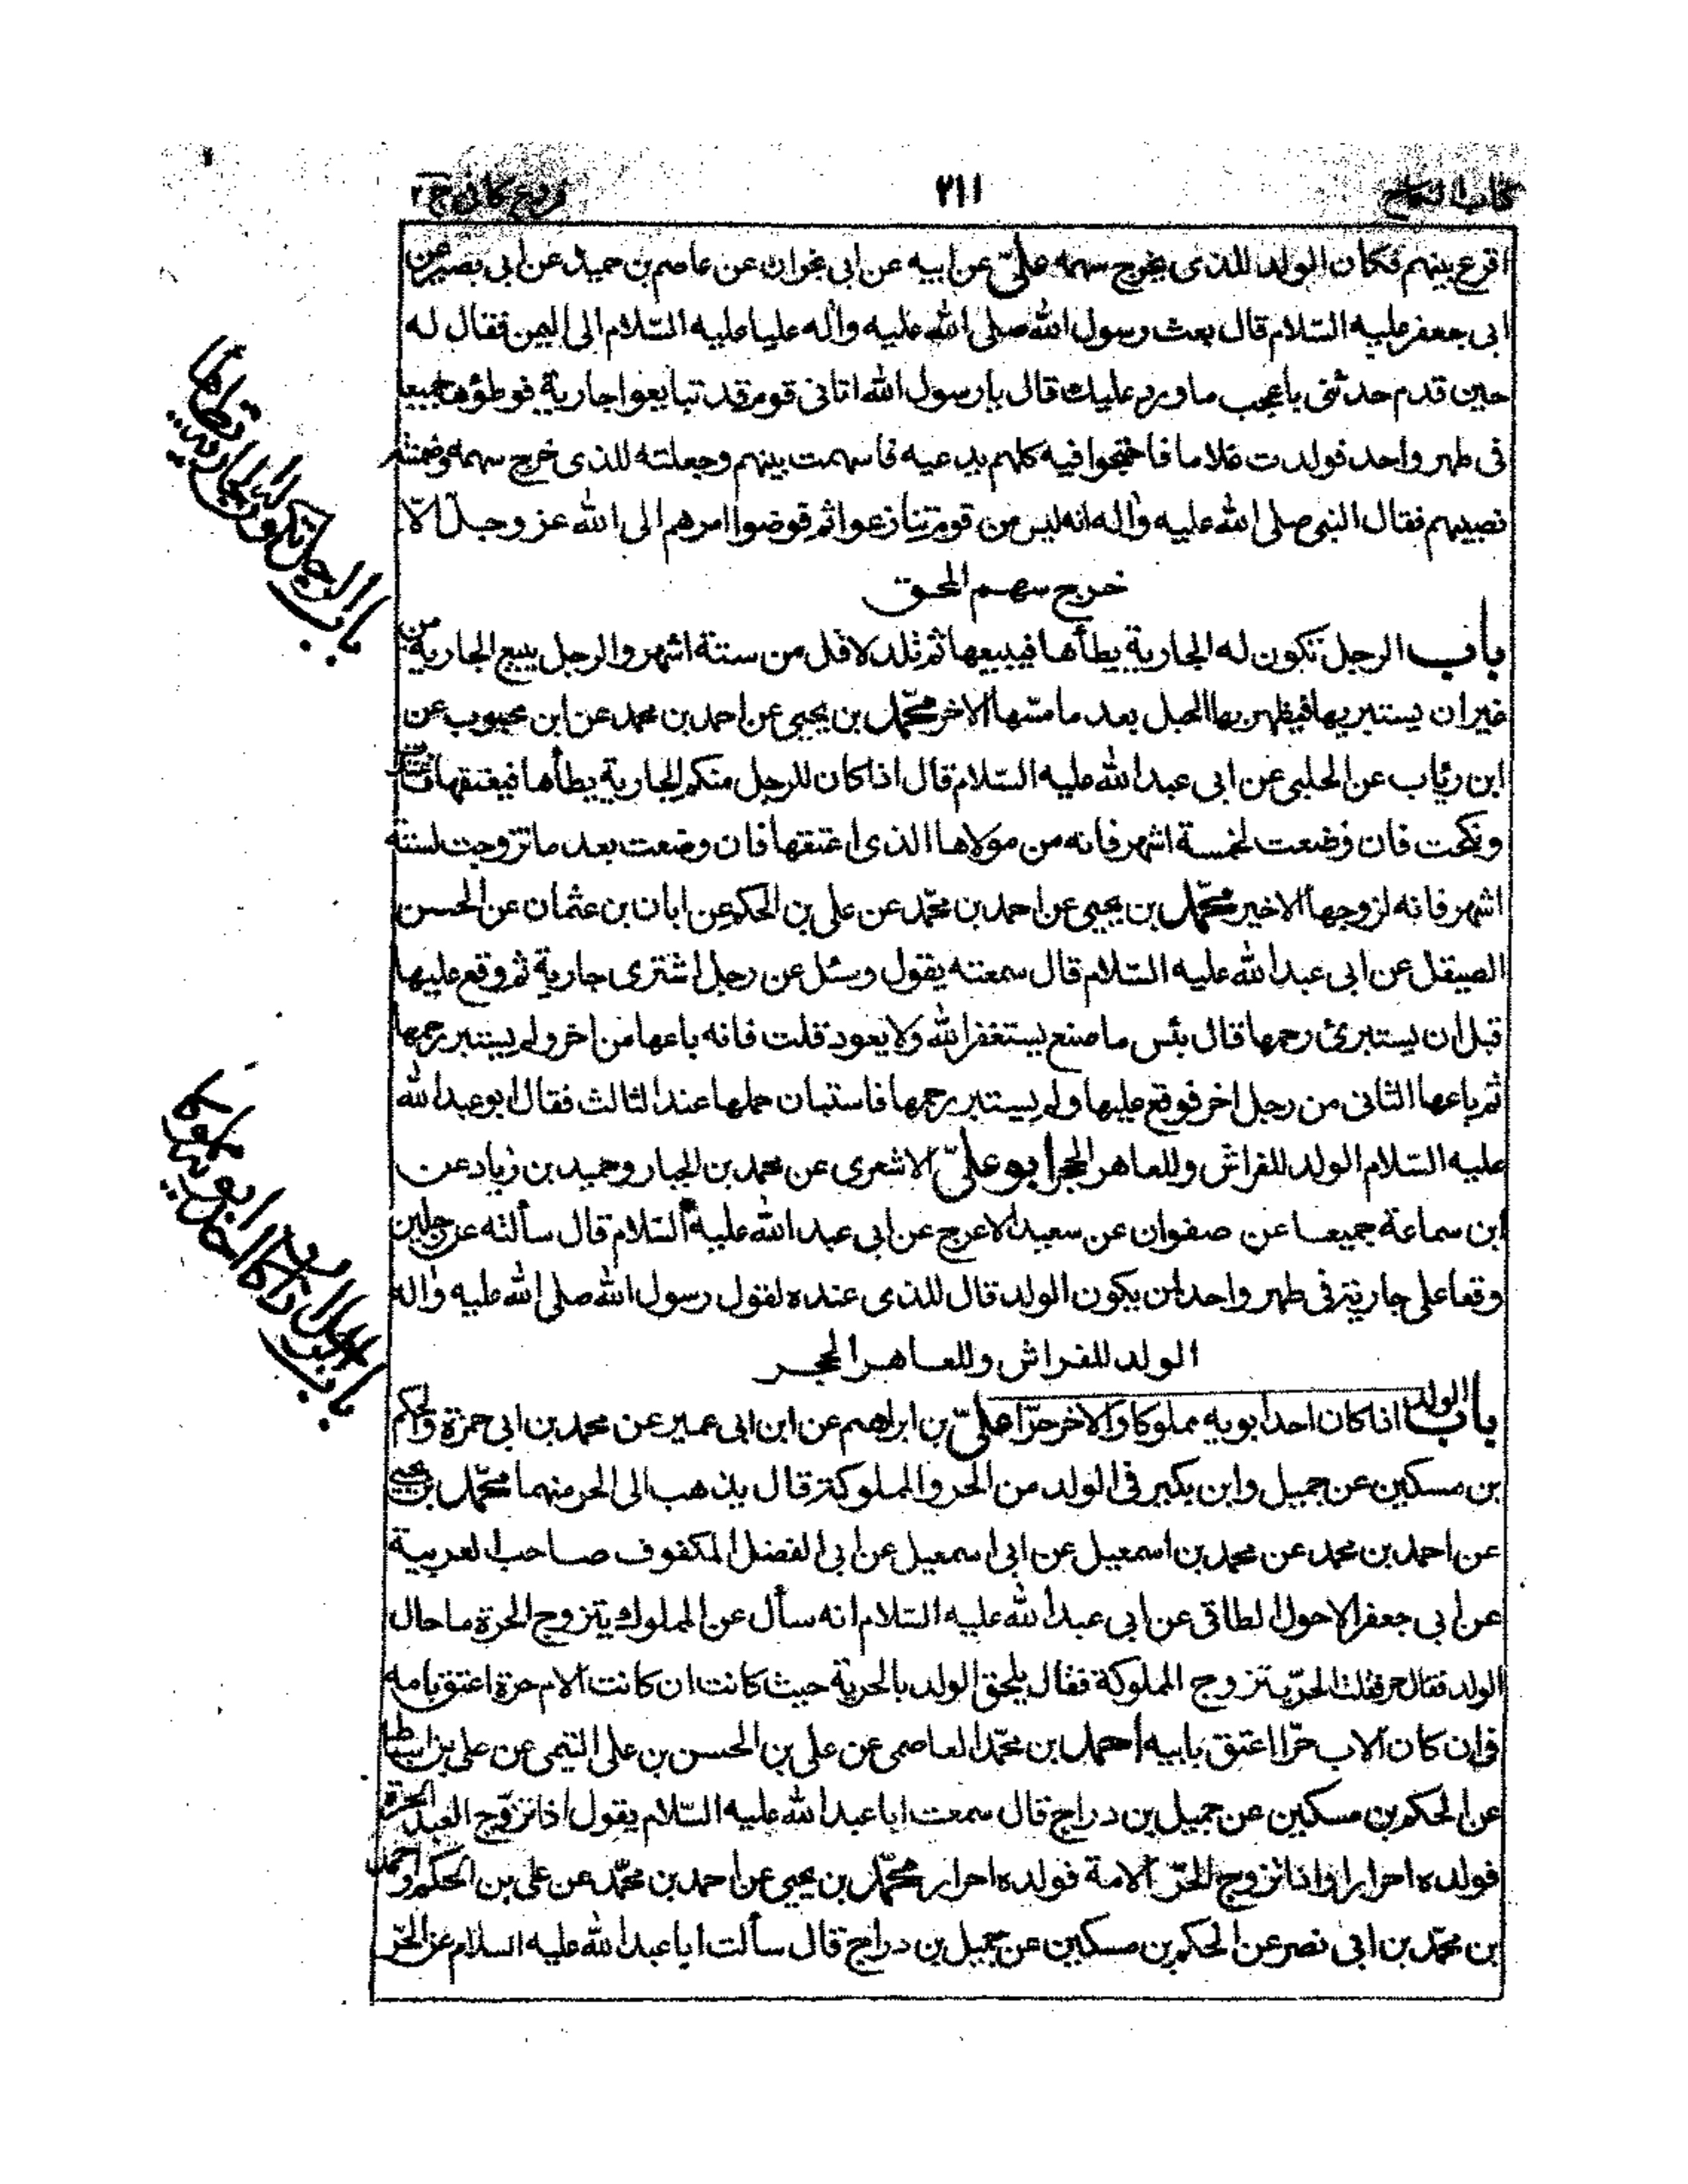 كتاب النكاح
٢١١
فروع كافى ج٢
اقرع بينهم فكان الولد للذى يخرج سهمه علىّ عن ابيه عن ابى نجران عن عاصم بن حميد عن ابى بصير عن
ابى جعفر عليه السّلام قال بعث رسول الله صلى الله عليه واله عليا عليه السّلام الى اليمن فقال له
حين قدم حدثنى باعجب ما ورد عليك قال يا رسول الله اتانى قوم قد تبايعوا جارية فوطؤها جميعا
فى طهر واحد فولدت غلاما فاحتجوا فيه كلهم يدعيه فاسهمت بينهم وجعلته للذى خرج سهمه وضمنته
نصيبهم فقال النبى صلى الله عليه واله انه ليس من قوم تنازعوا ثم فوضوا امرهم الى الله عز وجل الّا
خرج سهم المحق
باب الرجل تكون له الجارية يطأها فيبيعها ثم تلد لاقل من ستة اشهر والرجل يبيع الجارية من
غير ان يستبريها فيظهر بها الحبل بعد ما مسّها الاخر محمّد بن يحيى عن احمد بن محمد عن ابن محبوب عن
ابن رئاب عن الحلبى عن ابى عبد الله عليه السّلام قال اذا كان للرجل منكم الجارية يطأها فيعتقها فاعتدّت
ونكحت فان وضعت لخمسة اشهر فانه من مولاها الذى اعتقها فان وضعت بعد ما تزوجت لستة
اشهر فانه لزوجها الاخير محمّد بن يحيى عن احمد بن محمّد عن على بن الحكم عن ابان بن عثمان عن الحسن
الصيقل عن ابى عبد الله عليه السّلام قال سمعته يقول وسئل عن رجل اشترى جارية ثم وقع عليها
قبل ان يستبرئ رحمها قال بئس ما صنع يستغفر الله ولا يعود قلت فانه باعها من اخر ولم يستبر رحمها
ثم باعها الثانى من رجل اخر فوقع عليها ولم يستبر رحمها فاستبان حملها عند الثالث فقال ابو عبد الله
عليه السّلام الولد للفراش وللعاهر الحجر ابو علىّ الاشعرى عن محمد بن الجبار وحميد بن زياد عن
ابن سماعة جميعا عن صفوان عن سعيد الاعرج عن ابى عبد الله عليه السّلام قال سألته عن رجلين
وقعا على جارية فى طهر واحد لمن يكون الولد قال للذى عنده لقول رسول الله صلى الله عليه واله
الولد للفراش وللعاهر الحجر
باب الولد اذا كان احد ابويه مملوكا والاخر حرّا علىّ بن ابراهيم عن ابن ابى عمير عن محمد بن ابى حمزة والحكم
بن مسكين عن جميل وابن بكير فى الولد من الحر والمملوكة قال يذهب الى الحر منهما محمّد بن يحيى
عن احمد بن محمد عن محمد بن اسمعيل عن ابى اسمعيل عن ابى الفضل المكفوف صاحب العربية
عن ابى جعفر الاحول الطاقى عن ابى عبد الله عليه السّلام انه سأل عن المملوك يتزوج الحرة ما حال
الولد فقال حر فقلت الحرّ يتزوج المملوكة فقال يلحق الولد بالحرية حيث كانت ان كانت الام حرة اعتق بامه
فان كان الاب حرّا اعتق بابيه احمد بن محمّد العاصمى عن على بن الحسن بن على التيمى عن على بن اسباط
عن الحكم بن مسكين عن جميل بن دراج قال سمعت ابا عبد الله عليه السّلام يقول اذا تزوّج العبد الحرة
فولده احرار واذا تزوج الحرّ الامة فولده احرار محمّد بن يحيى عن احمد بن محمّد عن على بن الحكم واحمد
بن محمّد بن ابى نصر عن الحكم بن مسكين عن جميل بن دراج قال سألت ابا عبد الله عليه السلام عن الحرّ
باب الرجل تكون له الجارية يطأها
باب الولد اذا كان احد ابويه مملوكا